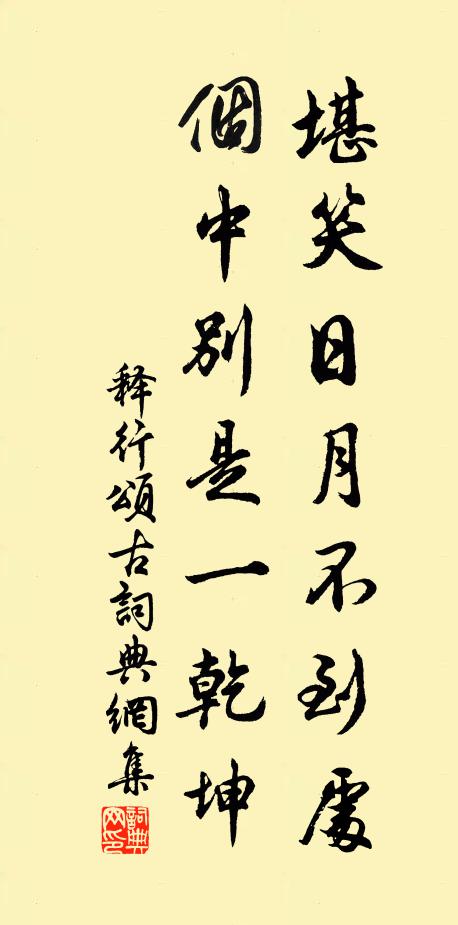 堪笑日月不到處
個中別是一乾坤
释行頌古詞典網集
詞典网印